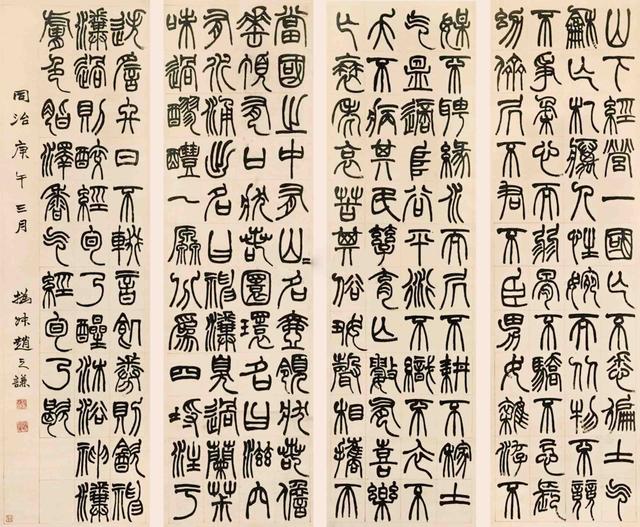 當國之中有山=名壺領狀若甔
甀頂有口狀若圜環名曰滋穴
有水涌出名曰神瀵臭過蘭茮
味過醪醴一源分為四埒注于
山下經營一國亡不悉徧土气
龢亡札癘人性婉而從物不競
不爭柔心而弱骨不驕不忌長
幼儕居不君不臣男女雜游不
媒不聘緣水而居不耕不稼土
气昷適不織不衣不
夭不病其民孳阜亡數有喜樂
亡衰老哀苦其俗好聲相攜而
迭謠終日不輟音飢惓則飲神
瀵過則醉經旬乃醒沐浴神瀵
膚色脂澤香气經旬乃歇
同治庚午三月 撝叔趙之謙